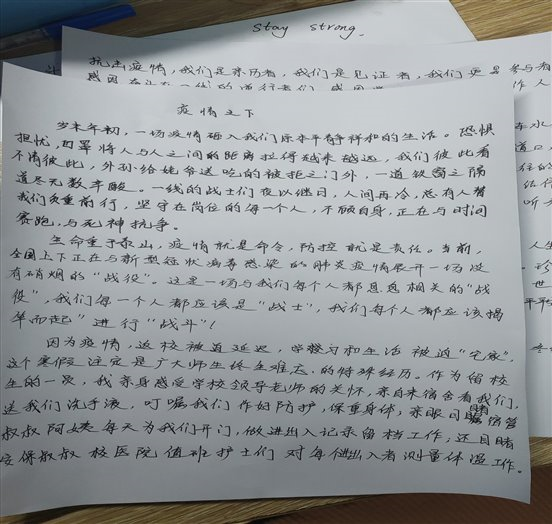 Stay strong.
抗击疫情,我们是亲历者,我们是见证者,我们更是参与者
疫情之下
岁末年初,一场疫情砸入我们原本平静祥和的生活。恐惧
担忧,口罩将人与人之间的距离拉得越来越远,我们彼此看
不清彼此,外孙给姥爷送吃的被拒之门外,一道铁窗之隔
道尽无数辛酸。一线的战士们夜以继日,人间再冷,总有人替
我们负重前行,坚守在岗位的每一个人,不顾自身,正在与时间
赛跑,与死神抗争。
生命重于泰山,疫情就是命令,防控就是责任。当前,
全国上下正在与新型冠状病毒感染的肺炎疫情展开一场没
有硝烟的“战役”。这是一场与我们每个人都息息相关的“战
役”,我们每一个人都应该是“战士”,我们每个人都应该揭
竿而起”进行“战斗”!
因为疫情,返校被迫延迟,学习和生活被迫“宅家”,
这个寒假注定是广大师生终生难忘的特殊经历。作为留校
生的一员,我亲身感受学校领导老师的关怀,亲自来宿舍看我们,
送我们洗手液,叮嘱我们作好防护,保重身体,亲眼目睹宿管
叔叔阿姨每天为我们开门,做进出入记录留档工作,还目睹
安保叔叔校医院值班护士们对每个进出入者测量体温工作。